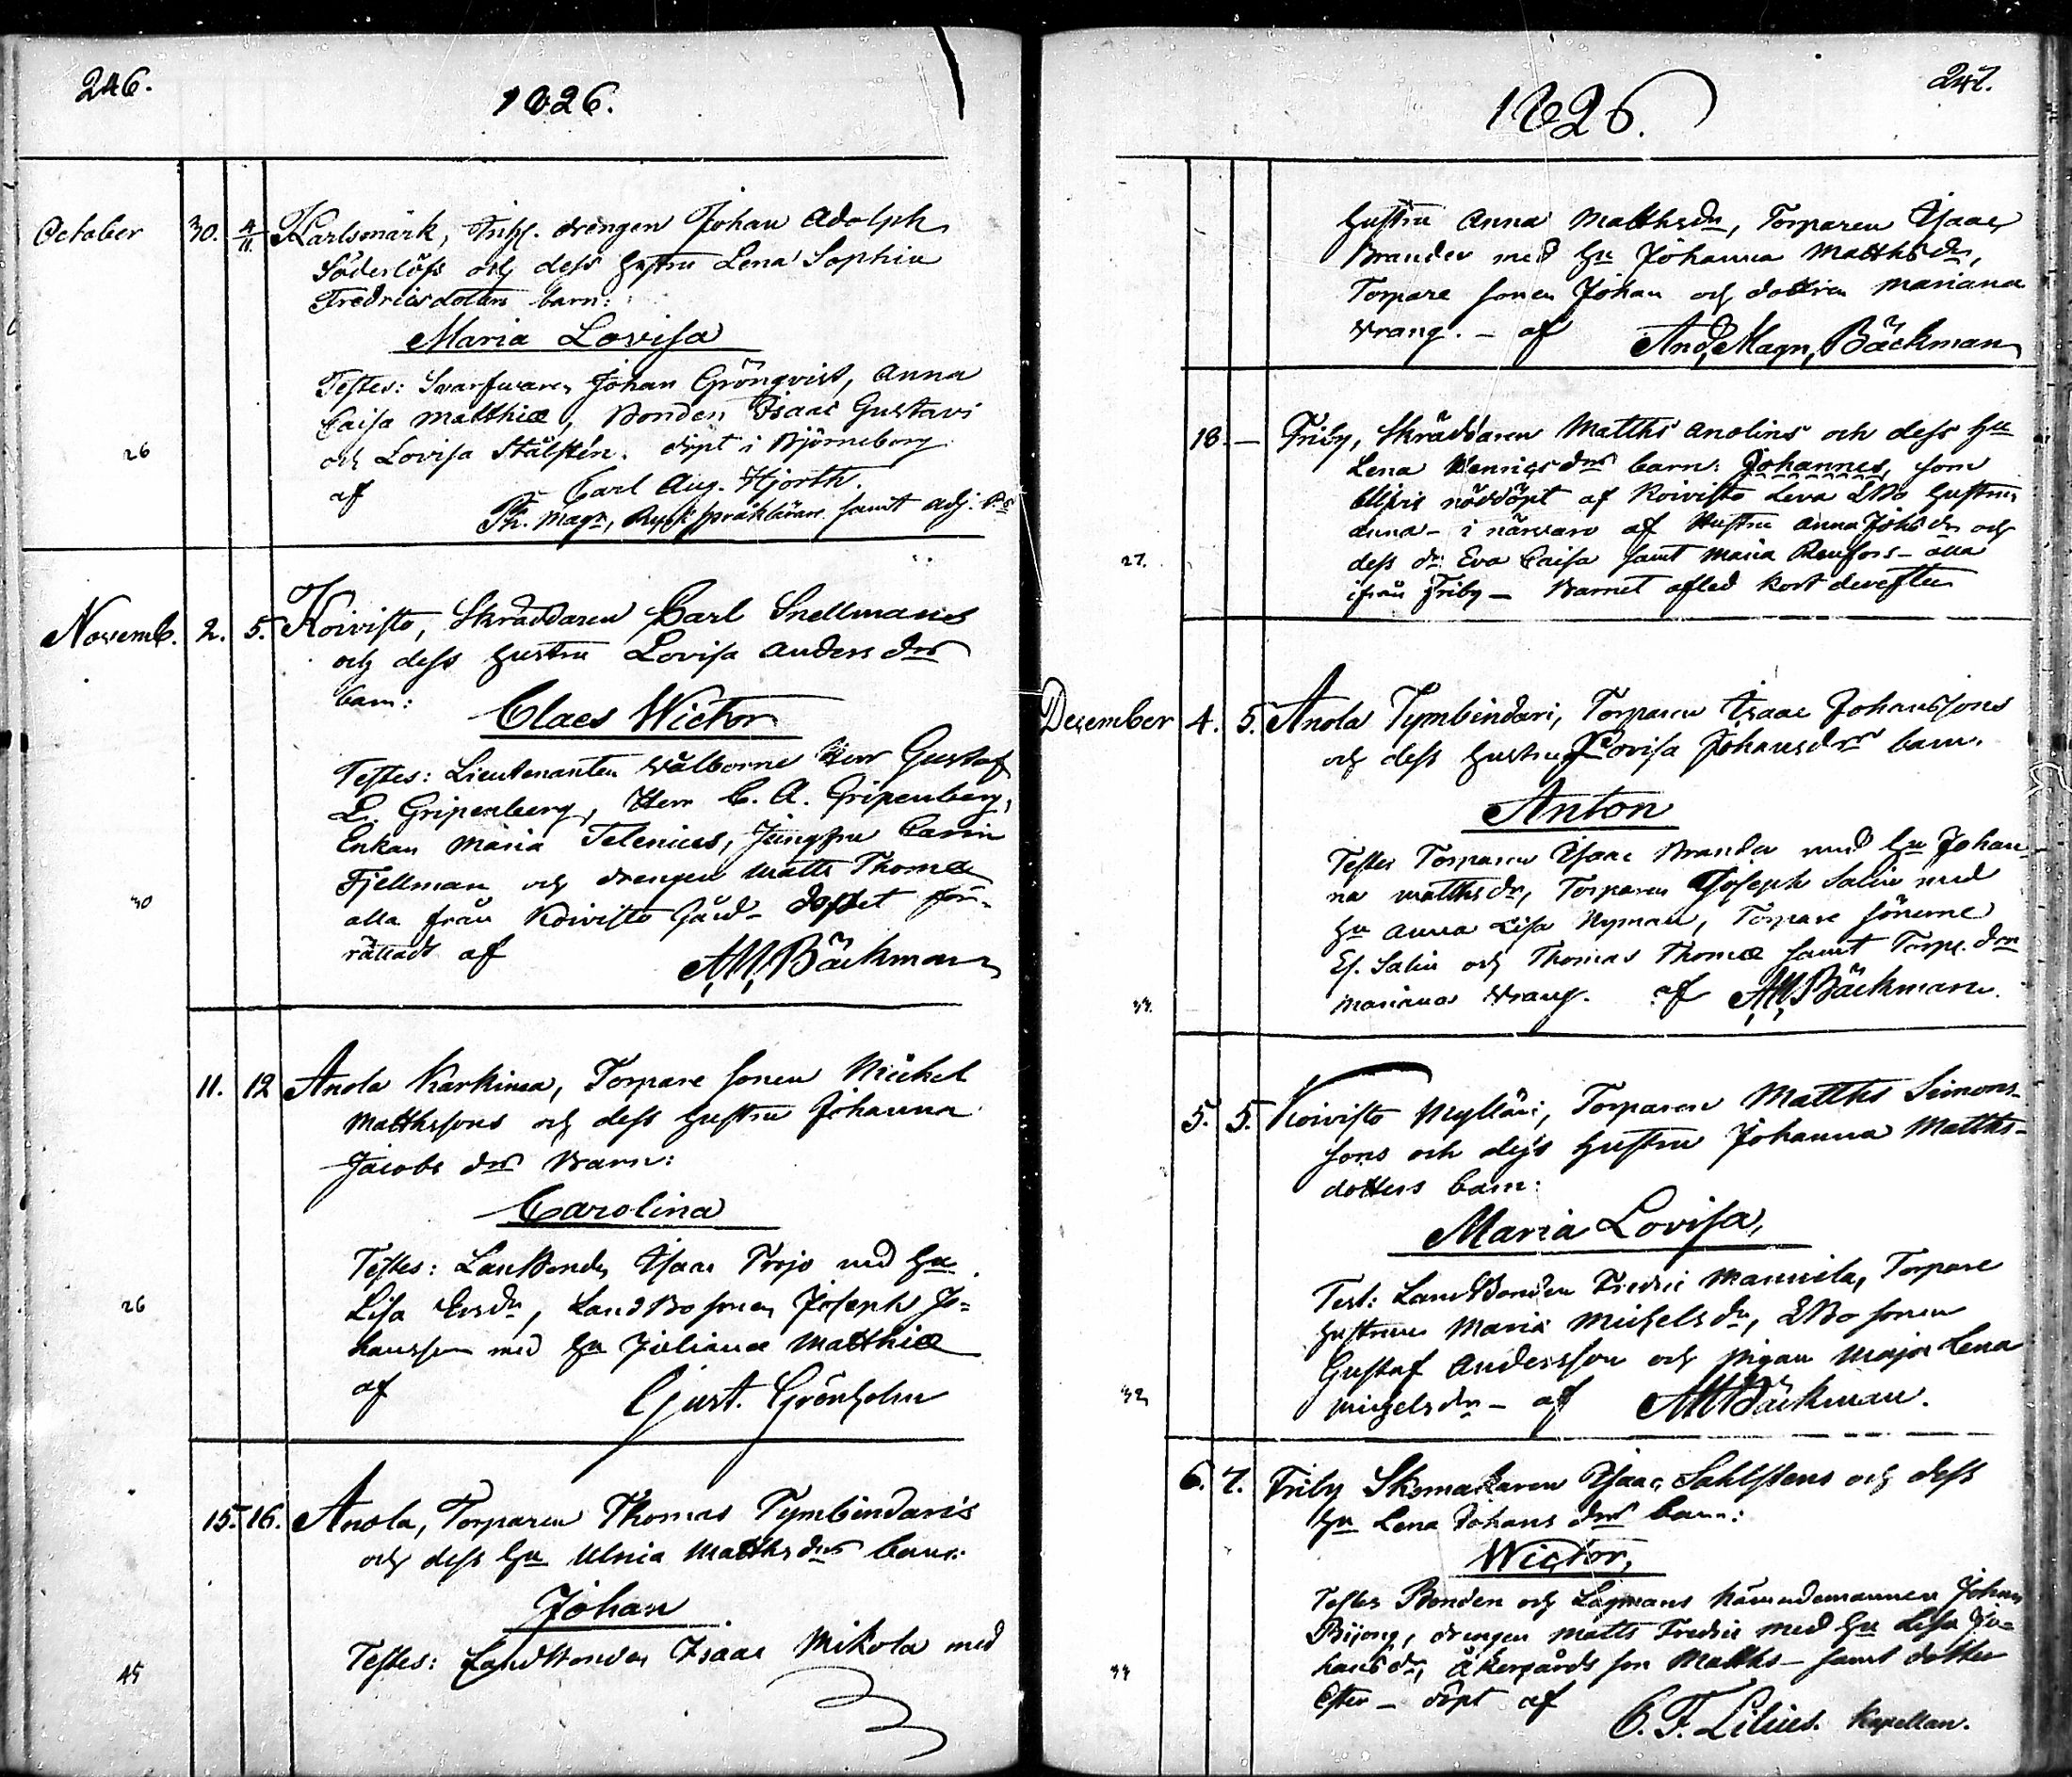 246.
1826.
October 30. 4/11. Karlsmark, Inh. drengen Johan Adolph
Söderlöfs och dess hustru Lena Sophia
Fredricsdotters barn:
Maria Lovisa
Testes: Svarfvaren Johan Grönqvist, Anna
Caisa Matthiæ, Bonden Isaac Gustavi
och Lovisa Stålstén. döpt i Björneborg
26
af Carl Aug. Hjorth.
Ph. Mag:r, Rysk språklärare samt adj.
Novemb. 2. 5. Koivisto, Skräddaren Carl Snellmans
och dess hustru Lovisa Anders drs
barn:
Claes Wictor
Testes: Lieutenanten Välborne Herr Gustaf
L. Gripenberg, Herr C. A. Gripenberg,
Enkan Maria Telenius, Jungfru Carin
Fjellman och drengen Matts Thomæ
30
alla från Koivisto Gård - dopet för-
rättadt af AMBäckman
11. 12 Anola Karkima, Torpare sonen Michel
Matthssons och dess hustru Johanna
Jacobs drs Barn:
Carolina
Testes: Landbonden Isaac Projo med hu
26
Lisa Ersdr, Landbosonen Joseph Jo=
hansson med hu Juliana Matthiæ
af Gust. Grönholm
15. 16. Anola, Torparen Thomas Tymbindaris
och dess hu Ulrica Matthsdrs barn:
Johan
Testes: Landbonden Isaac Mikola med
45
247.
1826.
hustru Anna Matthsdr, Torparen Isaac
Brander med hu Johanna Matthsdr,
Torpare sonen Johan och dottren Mariana
Vrang. - af And. Magn. Bäckman
18. - Friby, Skräddaren Matths Anolins och dess hu
Lena Henricsdrs barn: Johannes, som
blifvit nöddöpt af Koivisto Leva LBo hustru
Anna - i närvaro af Hustru Anna Johsdr och
27.
dess dr Eva Caisa samt Maria Renfors - alla
ifrån Friby - Barnet afled kort derefter
December 4. 5. Anola Tymbindari, Torparen Isaac Johanssons
och dess hustru Lovisa Johansdrs barn.
Anton
Testes Torparen Isaac Brander med hu Johan-
na Matthsdr, Torparen Joseph Salin med
hu Anna Lisa Nyman, Torpare sönerne
Es. Salin och Thomas Thomæ samt Torp. dm
33.
Mariana Vrang. af AMBäckman.
5. 5. Koivisto Mylläri, Torparen Matths Simons-
sons och dess hustru Johanna Matths-
dotters barn:
Maria Lovisa,
Test: Landbonden Fredric Mannila, Torpare
hustrun Maria Michelsdr, LBo sonen
Gustaf Andersson och pigan Maja Lena
32
Michelsdr - af AMBäckman.
6. 7. Friby Skomakaren Isaac Sahlstens och dess
hu Lena Johans drs barn:
Wictor,
Testes Bonden och Lagmans häradsmannen Johan
Bijong, drengen Matts Fredric med hu Lisa Jo=
33
hansdr, Åkergårds son Matths - samt dotter
Ester - döpt af
C. F. Lilius. Kapellan.